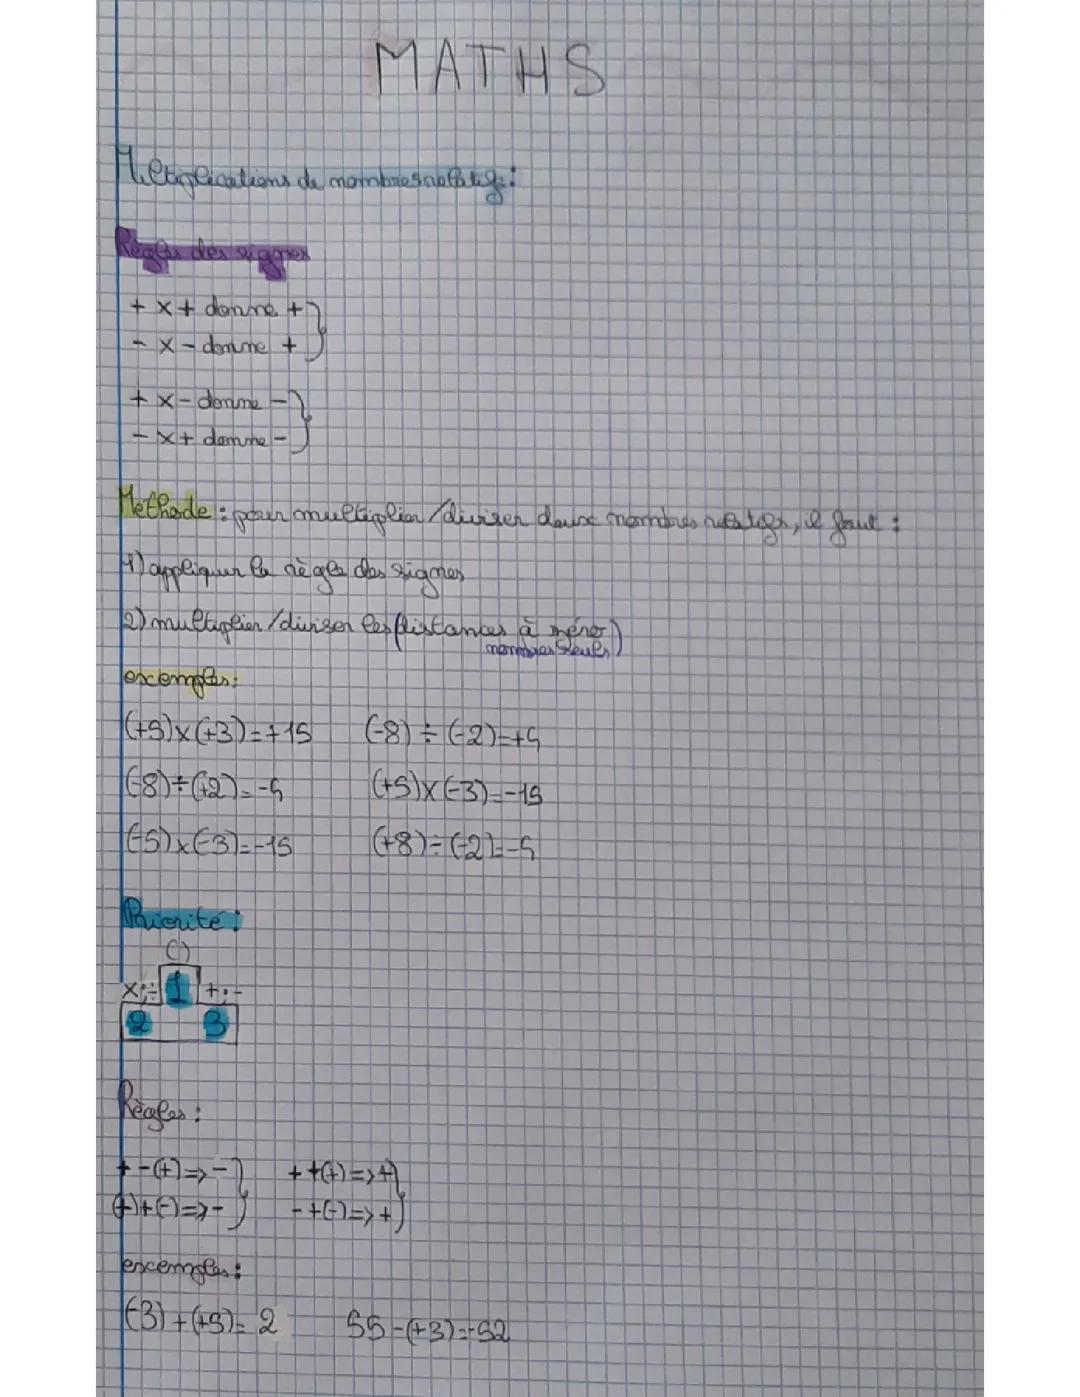 MATHS
Multiplications de nombres relatifs :
Règles des signes
+ x + donne +
- x - donne +
+ x - donne -
- x + donne -
Methode : pour multiplier / diviser deux nombres relatifs, il faut :
1) appliquer la règle des signes
2) multiplier / diviser les (distances à zéro)
nombres seuls
excemples :
(+5) x (+3) = +15 (-8) ÷ (-2) = +4
(-8) ÷ (+2) = -4 (+5) x (-3) = -15
(-5) x (-3) = -15 (+8) ÷ (-2) = -4
Priorité :
()
x ; ÷ 1 + ; -
2 3
Règles :
+ - (+) => - + + (+) => +
(+) + (-) => - - + (-) => +
excemples :
(-3) + (+5) = 2 55 - (+3) = -52